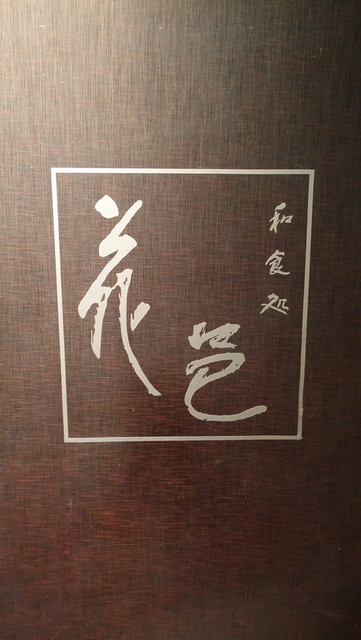 和食処
花邑